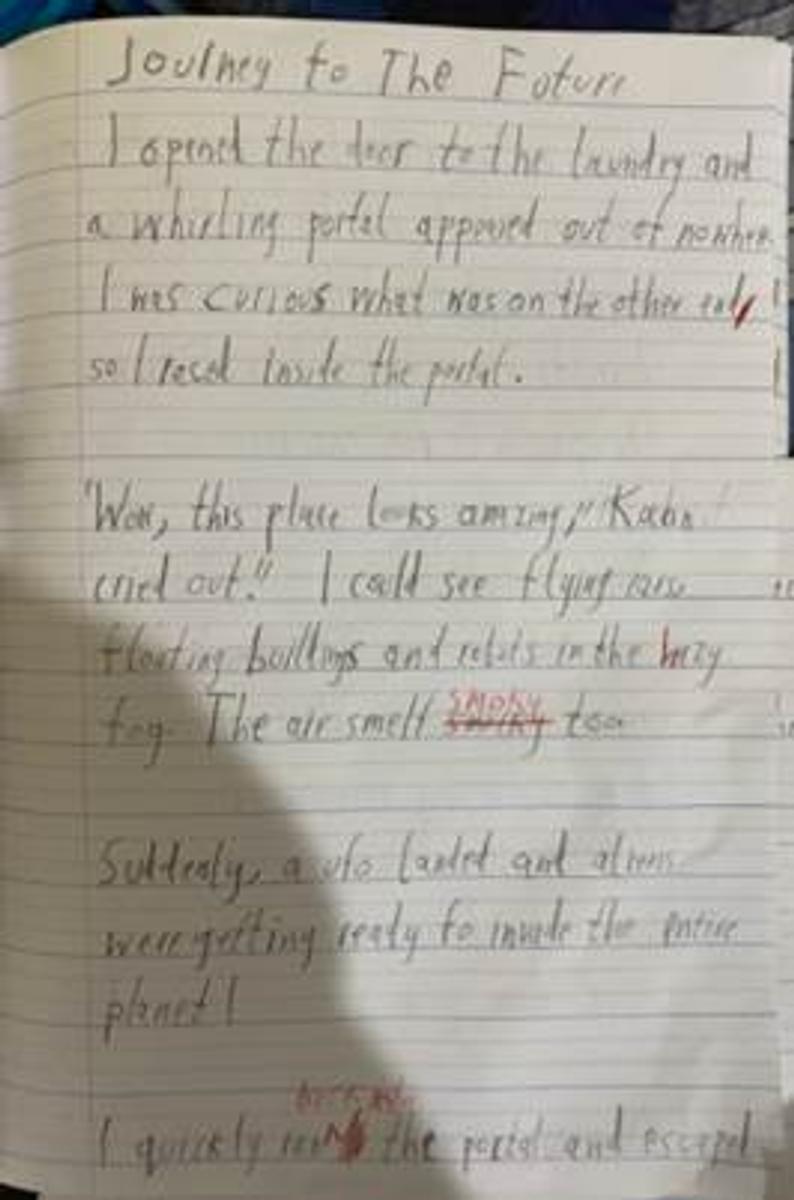 Journey to The Future
I opened the door to the laundry and
a whirling portal appeared out of nowhere
I was curious what was on the other end
so I raced inside the portal.
"Wow, this place looks amazing,"
cried out." I could see flying cars
floating buildings and robots in the hazy
fog. The air smelt smoky too
Suddenly, a ufo landed and aliens
were getting ready to invade the entire
planet!
I quickly the portal and escaped